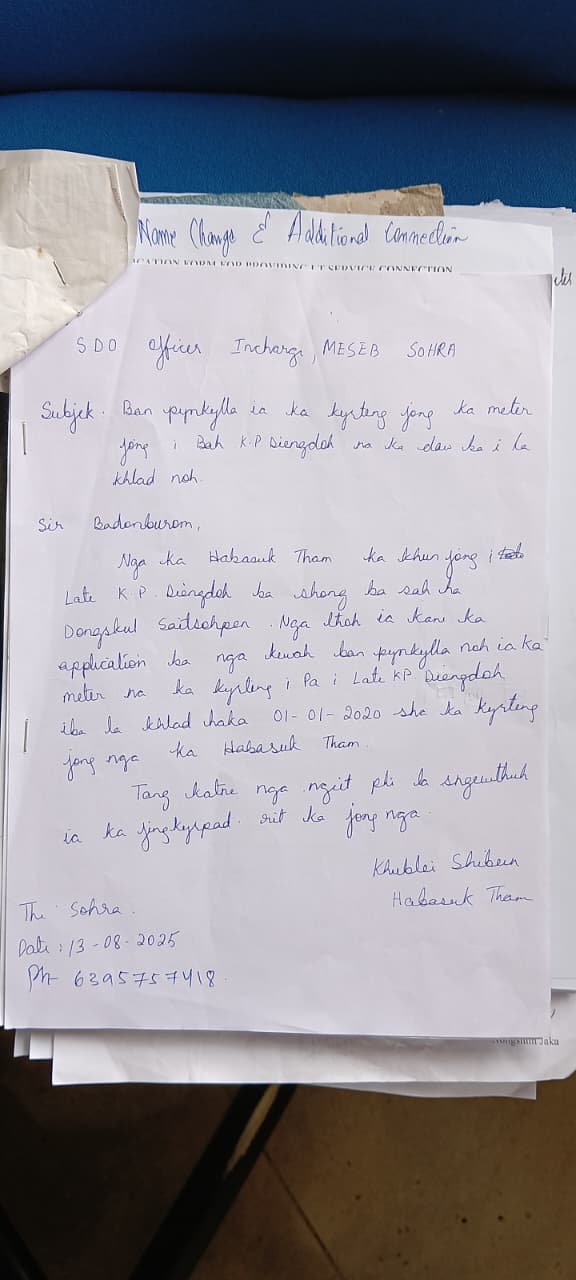 Name Change & Additional Connection
CATION FORM FOR PROVIDING LT SERVICE CONNECTION
SDO Officer Incharge, MESEB SOHRA
Subjek. Ban pynkylla ia ka kyrteng jong ka meter
jong i Bah K.P Diengdoh na ka daw ba i la
khlad noh.
Sir Badonburom,
Nga ka Habasuk Tham ka khun jong i
Late K.P. Diengdoh ba shong ba sah ha
Dongskul Saitsohpen. Nga thoh ia kane ka
application ba nga kwah ban pynkylla noh ia ka
meter na ka kyrteng i Pa i Late KP Diengdoh
iba la khlad haka 01-01-2020 sha ka kyrteng
jong nga ka Habasuk Tham.
Tang katne nga ngeit phi la sngewthuh
ia ka jingkyrpad rit ka jong nga.
Khublei Shibun
Habasuk Tham
The Sohra.
Date: 13-08-2025
Ph- 6395757418.
Jaka